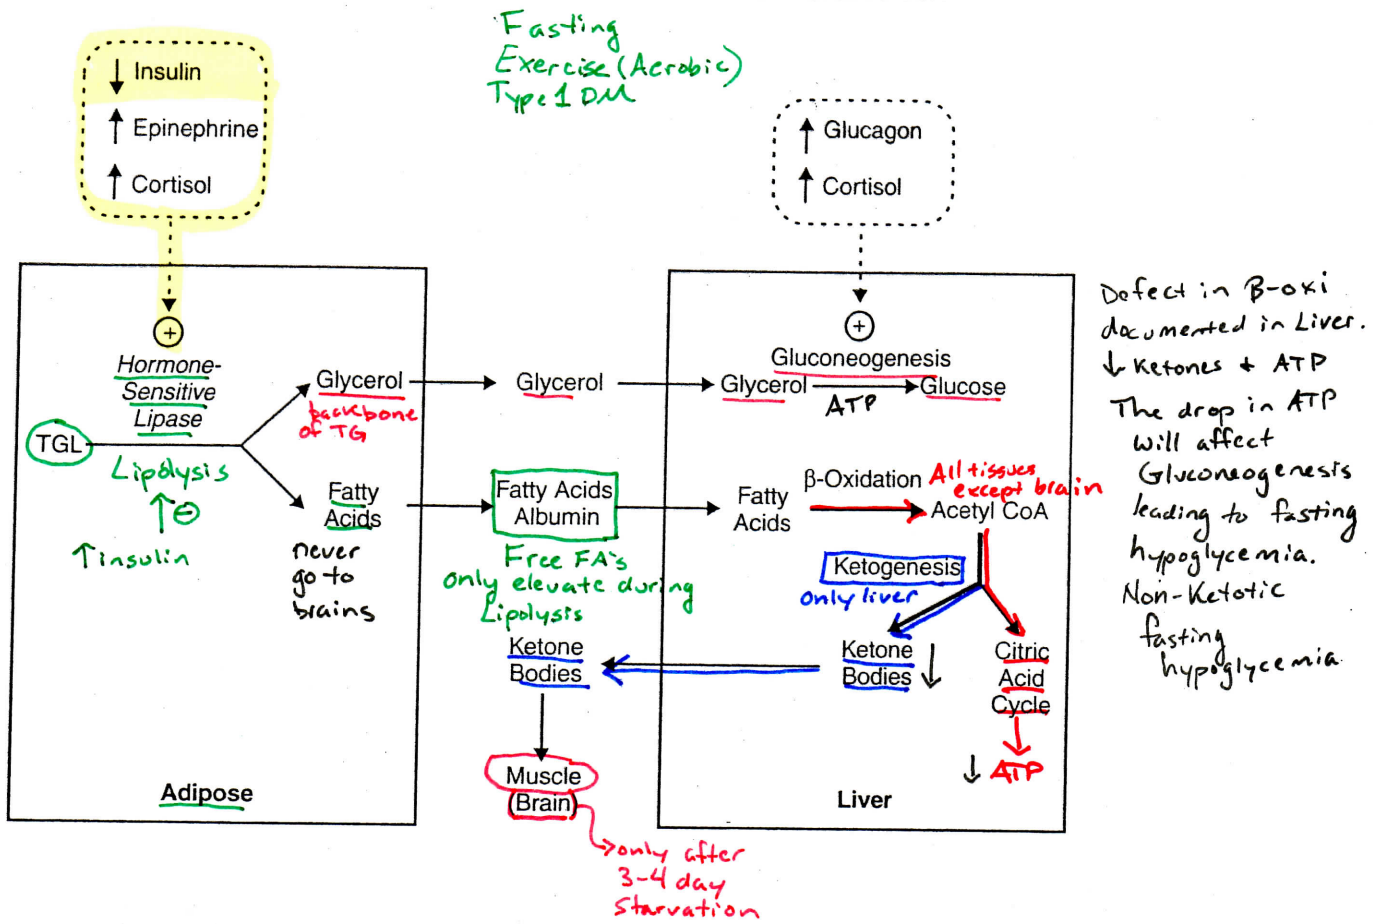 Fasting
Exercise (Aerobic)
Type 1 DM
↓ Insulin
↑ Epinephrine
↑ Cortisol
↑ Glucagon
↑ Cortisol
+
Hormone-
Sensitive
Lipase
TGL
Lipolysis
↑⊖
↑insulin
Glycerol
backbone
of TG
Fatty
Acids
never
go to
brains
Adipose
Glycerol
Fatty Acids
Albumin
Free FA's
only elevate during
Lipolysis
Ketone
Bodies
Muscle
(Brain)
only after
3-4 day
starvation
+
Gluconeogenesis
Glycerol
ATP
Glucose
Fatty
Acids
β-Oxidation
All tissues
except brain
Acetyl CoA
Ketogenesis
only liver
Ketone
Bodies ↓
Citric
Acid
Cycle
↓ ATP
Liver
Defect in B-oxi
documented in Liver.
↓ Ketones + ATP
The drop in ATP
will affect
Gluconeogenesis
leading to fasting
hypoglycemia.
Non-Ketotic
fasting
hypoglycemia